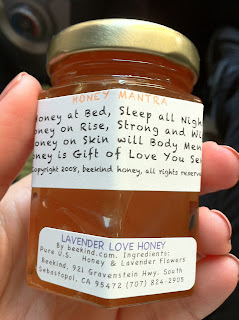 HONEY MANTRA:
Honey at Bed, Sleep all Nigh
oney on Rise, Strong and Wi
oney on Skin will Body Men
oney is Gift of Love You Se
Copyright 2008, beekind honey, all rights reserve
LAVENDER LOVE HONEY
By beekind.com. Ingredients:
Pure U.S. Honey & Lavender Flowers
Beekind, 921 Gravenstein Hwy. South
Sebastopol, CA 95472 (707) 824-2905